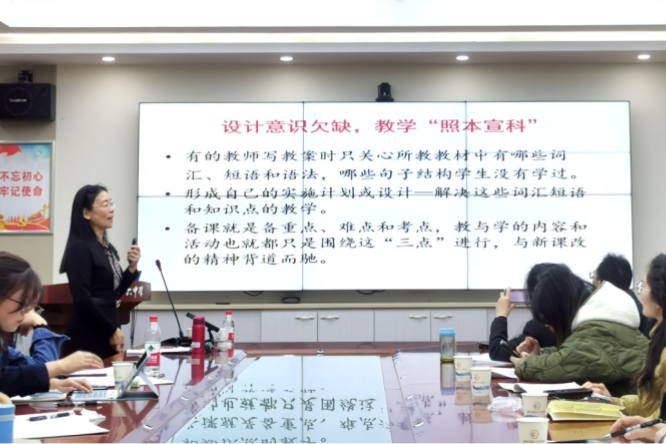 设计意识欠缺，教学“照本宣科”
• 有的教师写教案时只关心所教教材中有哪些词
汇、短语和语法，哪些句子结构学生没有学过。
• 形成自己的实施计划或设计—解决这些词汇短语
和知识点的教学。
• 备课就是备重点、难点和考点，教与学的内容和
活动也就都只是围绕这“三点”进行，与新课改
的精神背道而驰。
不忘初心
牢记使命